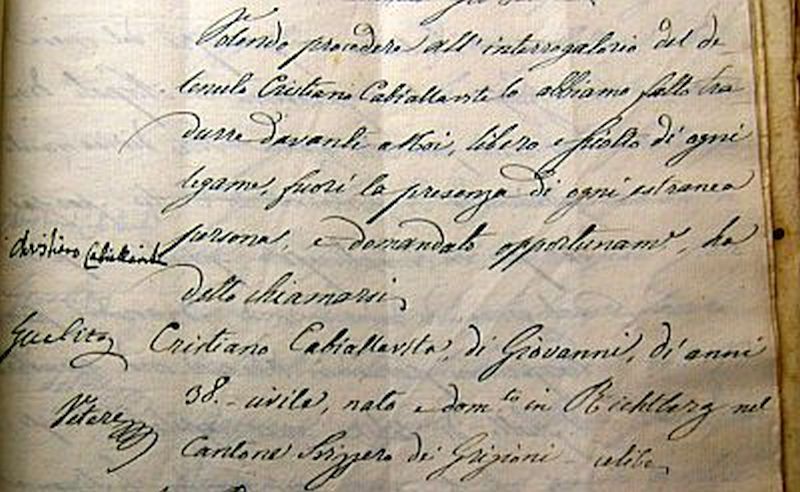 Volendo procedere all'interrogatorio del de-
tenuto Cristiano Cabiallavita lo abbiamo fatto tra
durre davanti a Noi, libero e sciolto di ogni
legame, fuori la presenza di ogni estranea
persona, e domandato opportunam.e, ha
detto chiamarsi
Cristiano Cabiallavita, di Giovanni, di anni
38. civile, nato e dom.to in
nel
Cantone Svizzero dei Grigioni celibe
Vetere